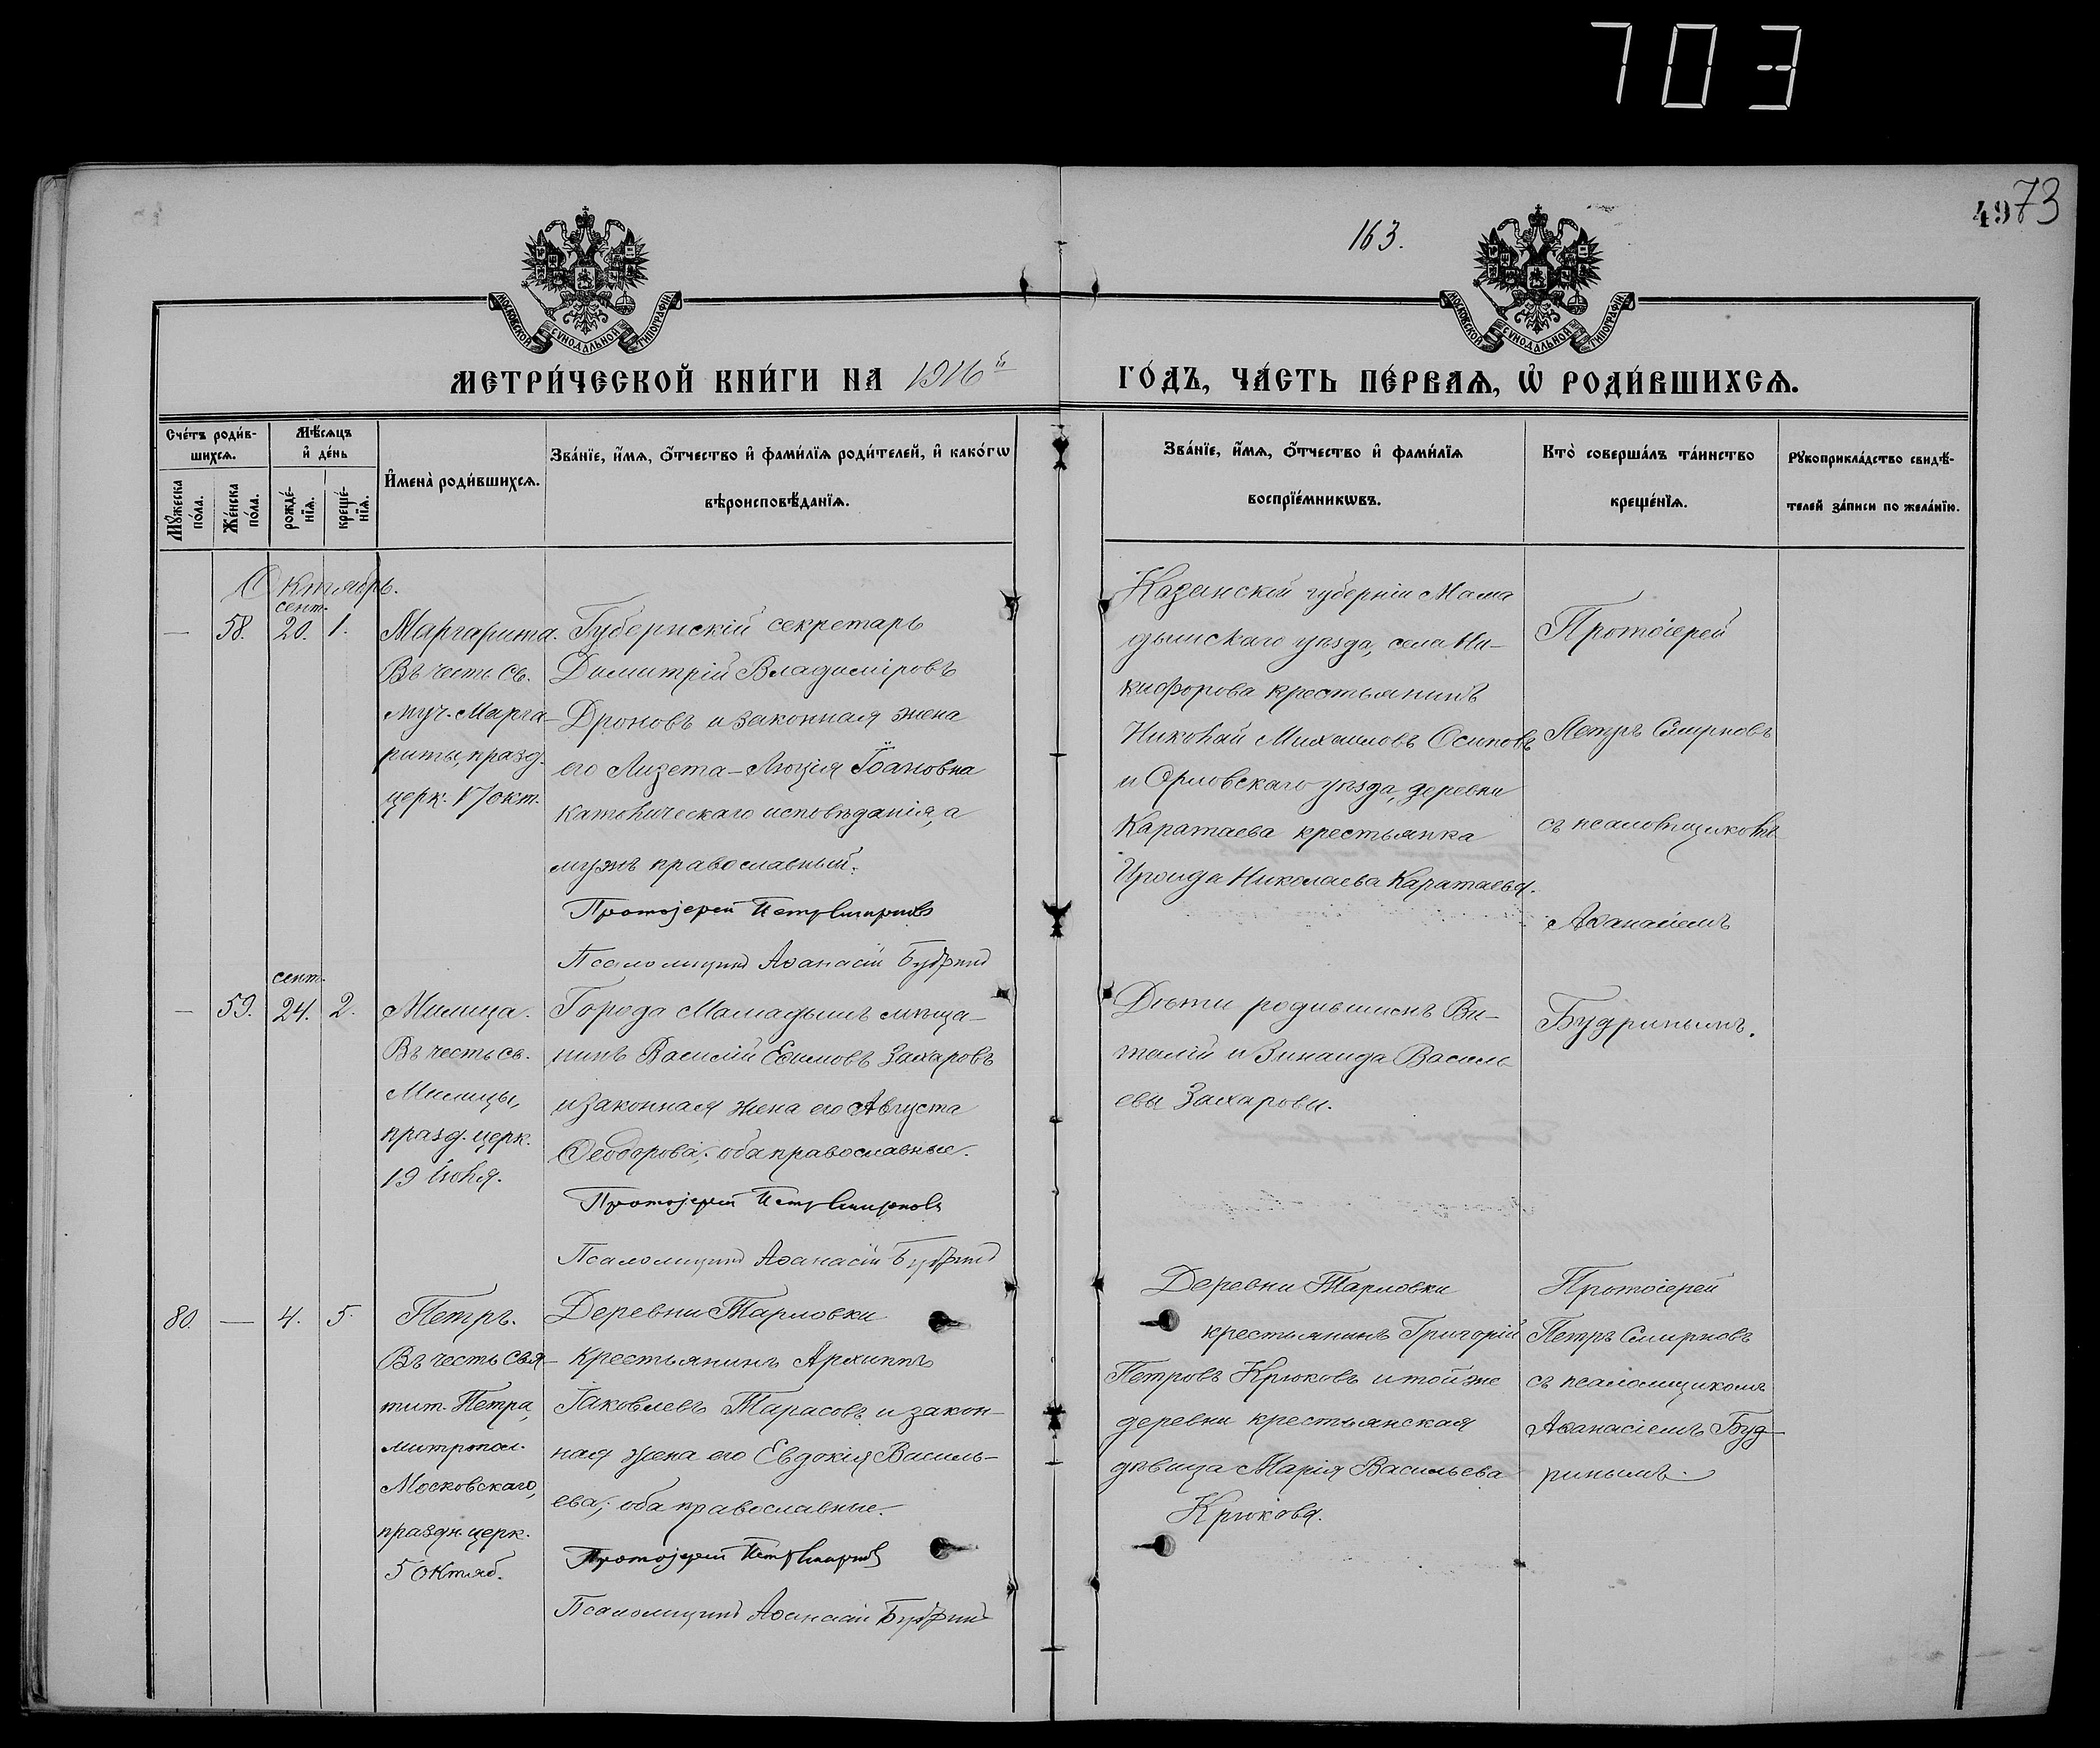 703
4973
163.
МОСКОВСКОЙ СѴНОДАЛЬНОЙ ТИПОГРАФІИ
МОСКОВСКОЙ СѴНОДАЛЬНОЙ ТИПОГРАФІИ
МЕТРИ́ЧЕСКОЙ КНИ́ГИ НА 1916й
ГО́ДЪ, ЧА́СТЬ ПЕ́РВАѦ, Ѡ҆ РОДИ́ВШИХСѦ.
Сче́тъ роди́в-
шихсѧ.
Мꙋ́жеска по́ла.
Же́нска по́ла.
Мѣ́сѧцъ и҆ де́нь
рожде́-нїѧ.
креще́-нїѧ.
И҆мена̀ роди́вшихсѧ.
Зва́нїе, и҆́мѧ, ѻ҆́тчество и҆ фами́лїѧ роди́телей, и҆ како́гѡ
вѣроисповѣ́данїѧ.
Зва́нїе, и҆́мѧ, ѻ҆́тчество и҆ фами́лїѧ
воспрїе́мникѡвъ.
Кто̀ соверша́лъ та́инство
креще́нїѧ.
Рꙋкоприкла́дство свидѣ́-
телей за́писи по жела́нїю.
Октябрь.
— 58. сент. 20. 1.
Маргарита.
Въ честь св.
муч. Марга-
риты, празд.
церк. 17 окт.
Губернскій секретарь
Димитрій Владиміровъ
Дроновъ и законная жена
его Лизета-Люція Іоановна
католическаго исповѣданія, а
мужъ православный.
Протоіерей Петръ Смирновъ
Псаломщикъ Аѳанасій Будринъ
Казанской губерніи Мама
дышскаго уѣзда, села Ни-
кифорова крестьянинъ
Николай Михаиловъ Осиповъ
и Орловскаго уѣзда, деревни
Каратаева крестьянка
Ираида Николаева Каратаева.
Протоіерей
Петръ Смирновъ
съ псаломщикомъ
Аѳанасіемъ
Будринымъ.
— 59. сент. 24. 2.
Милица.
Въ честь св.
Милицы,
празд. церк.
19 Іюля.
Города Мамадышъ мѣща-
нинъ Василій Евѳимовъ Захаровъ
и законная жена его Августа
Ѳеодорова; оба православные.
Протоіерей Петръ Смирновъ
Псаломщикъ Аѳанасій Будринъ
Дѣти родившихъ Ви-
талій и Зинаида Василь
евы Захаровы.
80. — 4. 5.
Петръ.
Въ честь Свя-
тит. Петра,
митропол.
Московскаго,
праздн. церк.
5 Октяб.
Деревни Тарловки
крестьянинъ Архиппъ
Іаковлевъ Тарасовъ и закон-
ная жена его Евдокія Василь-
ева; оба православные.
Протоіерей Петръ Смирновъ
Псаломщикъ Аѳанасій Будринъ
Деревни Тарловки
крестьянинъ Григорій
Петровъ Крюковъ и той же
деревни крестьянская
дѣвица Марія Васильева
Крюкова.
Протоіерей
Петръ Смирновъ
съ псаломщикомъ
Аѳанасіемъ Буд-
ринымъ.